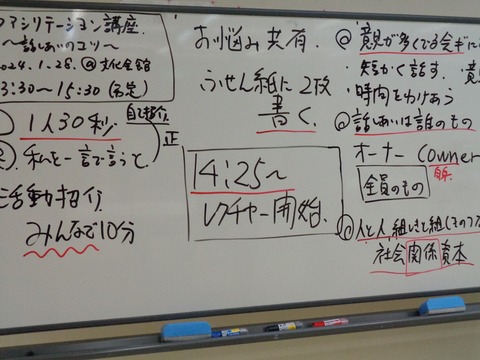 ファシリテーション講座.
〜話しあいのコツ〜
2024.1.28. @文化会館
13:30〜15:30
1人30秒
自己紹介
私を一言で言うと
正
活動招介
みんなで10分
お悩み共有.
ふせん紙に2枚
書く.
14:25〜
レクチャー開始.
意見が多くでる会ギに
・短かく話す.
・時間をわけあう
話しあいは誰のもの
オーナー (owner
全員のもの
人と人, 組しきと組しき
社会関係資本